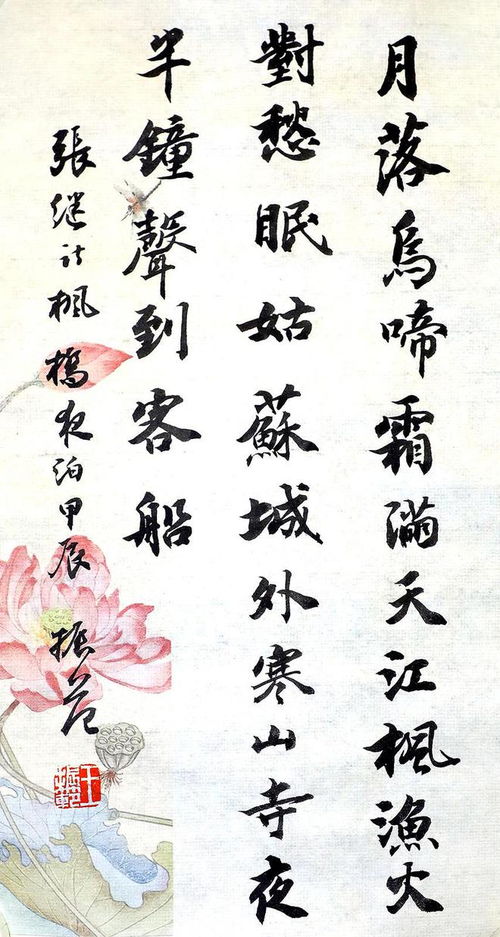 月落烏啼霜滿天江楓漁火
對愁眠姑蘇城外寒山寺夜
半鐘聲到客船
張继诗楓橋夜泊甲辰 振范
王振範